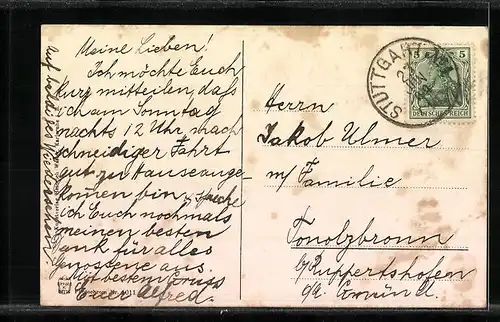 Meine Lieben!
Ich möchte Euch
kurz mitteilen, daß
ich am Sonntag
nachts 12 Uhr, nach
schneidiger Fahrt
gut zu Hause ange-
komen bin, spreche
ich Euch nochmals
meinen besten
Dank für alles
genossene aus.
Mit bestem Gruss
Euer Alfred.
auf baldiges Wiedersehen!
Herrn
Jakob Ulmer
m/ Familie
Tonolzbronn
b/ Ruppertshofen
o/a. Gmünd.
STUTTGART
5 5
DEUTSCHES REICH